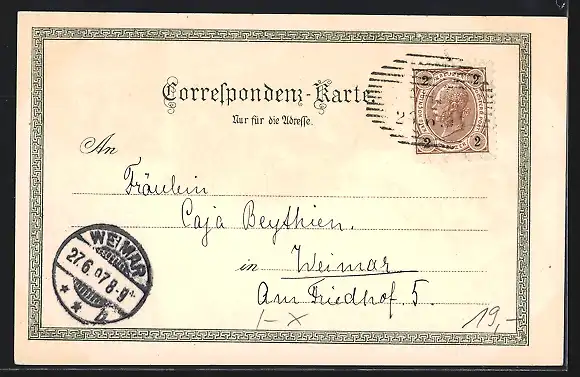 Correspondenz-Karte
Nur für die Adresse.
An
Fräulein
Caja Beythien.
in Weimar
Am Friedhof 5.
WEIMAR
27.6.97 8-9
2
2
2
2
19,-